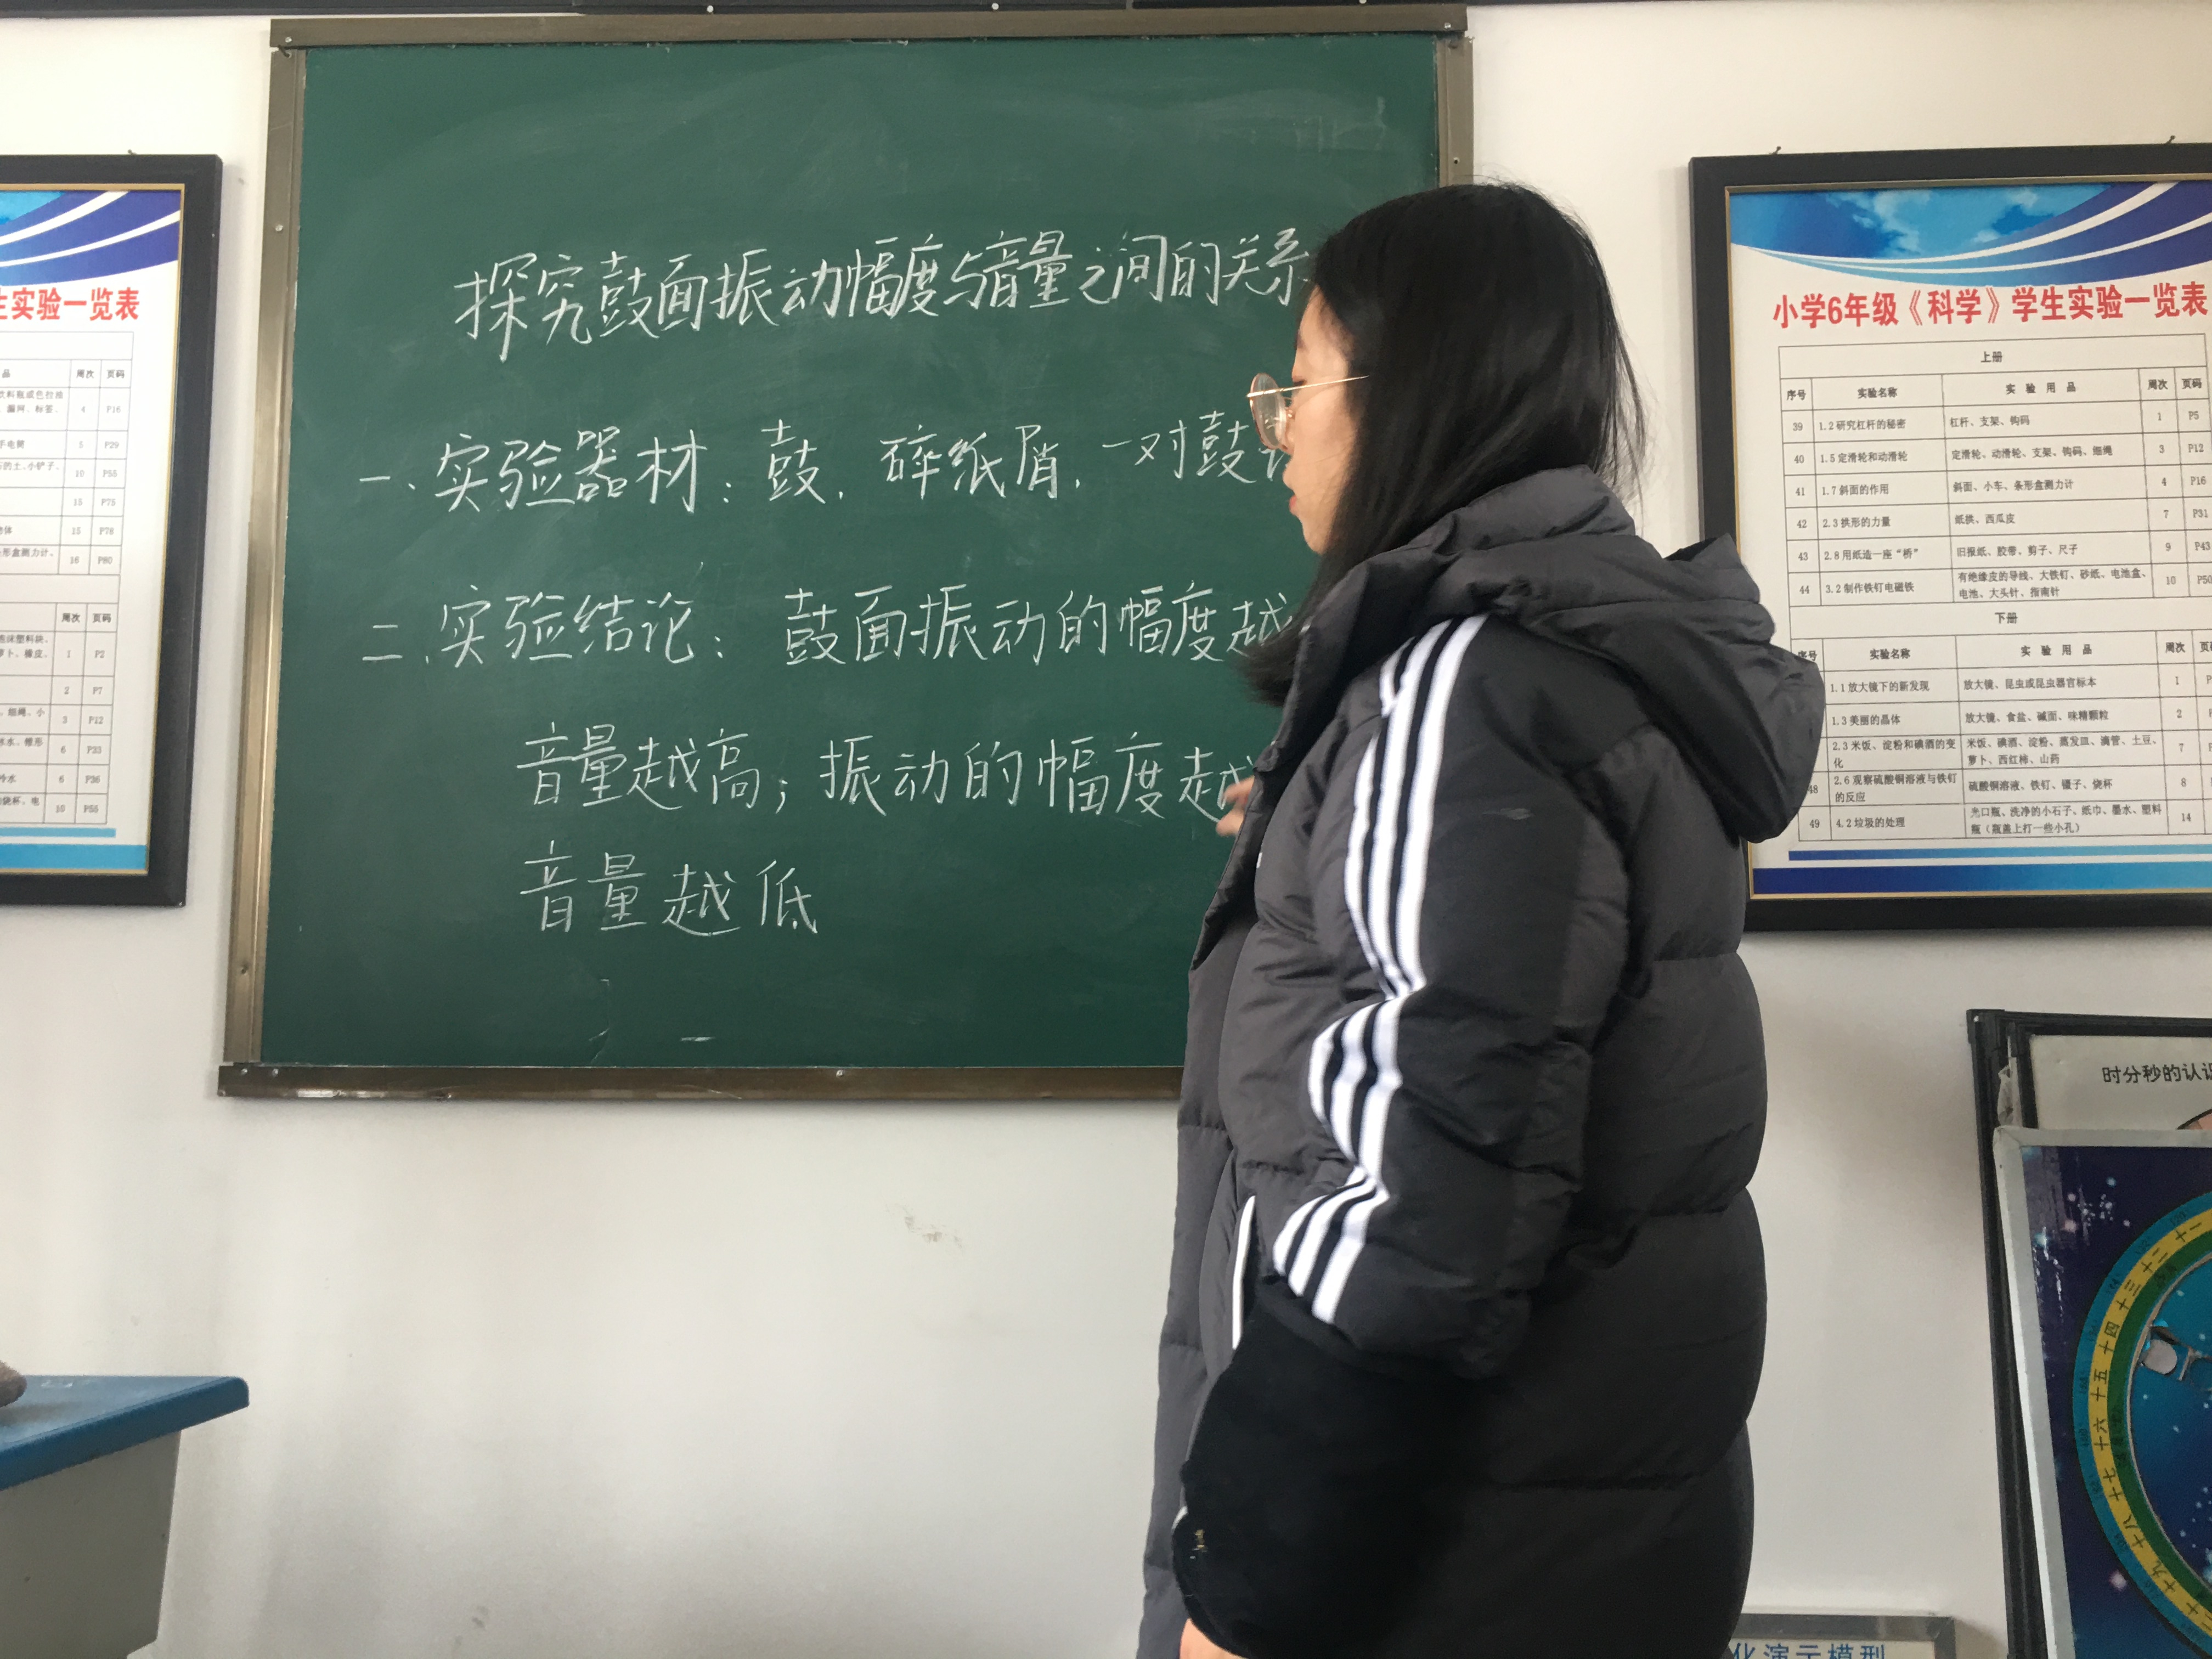 探究鼓面振动幅度与音量之间的关系
一、实验器材：鼓，碎纸屑，一对鼓
二、实验结论：鼓面振动的幅度越
音量越高；振动的幅度越
音量越低
生实验一览表
品 周次 页码
4 P16
手电筒 5 P29
10 P55
15 P75
15 P76
16 P80
周次 页码
1 P2
2 P7
3 P12
6 P33
6 P36
10 P55
小学6年级《科学》学生实验一览表
上册
序号 实验名称 实验用品 周次 页码
39 1.2研究杠杆的秘密 杠杆、支架、钩码 1 P5
40 1.5定滑轮和动滑轮 定滑轮、动滑轮、支架、钩码、细绳 3 P12
41 1.7斜面的作用 斜面、小车、条形盒测力计 4 P16
42 2.3拱形的力量 纸拱、西瓜皮 7 P31
43 2.8用纸造一座“桥” 旧报纸、胶带、剪子、尺子 9 P43
44 3.2制作铁钉电磁铁 有绝缘皮的导线、大铁钉、砂纸、电池盒、电池、大头针、指南针 10 P50
下册
序号 实验名称 实验用品 周次
1.1放大镜下的新发现 放大镜、昆虫或昆虫器官标本 1
1.3美丽的晶体 放大镜、食盐、碱面、味精颗粒 2
2.3米饭、淀粉和碘酒的变化 米饭、碘酒、淀粉、蒸发皿、滴管、土豆、萝卜、西红柿、山药 7
48 2.6观察硫酸铜溶液与铁钉的反应 硫酸铜溶液、铁钉、镊子、烧杯 8
49 4.2垃圾的处理 光口瓶、洗净的小石子、纸巾、墨水、塑料瓶（瓶盖上打一些小孔） 14
时分秒的认识
十一 十二 十三 十四 十五 十六 十七 十八 十九 二十
化演示模型